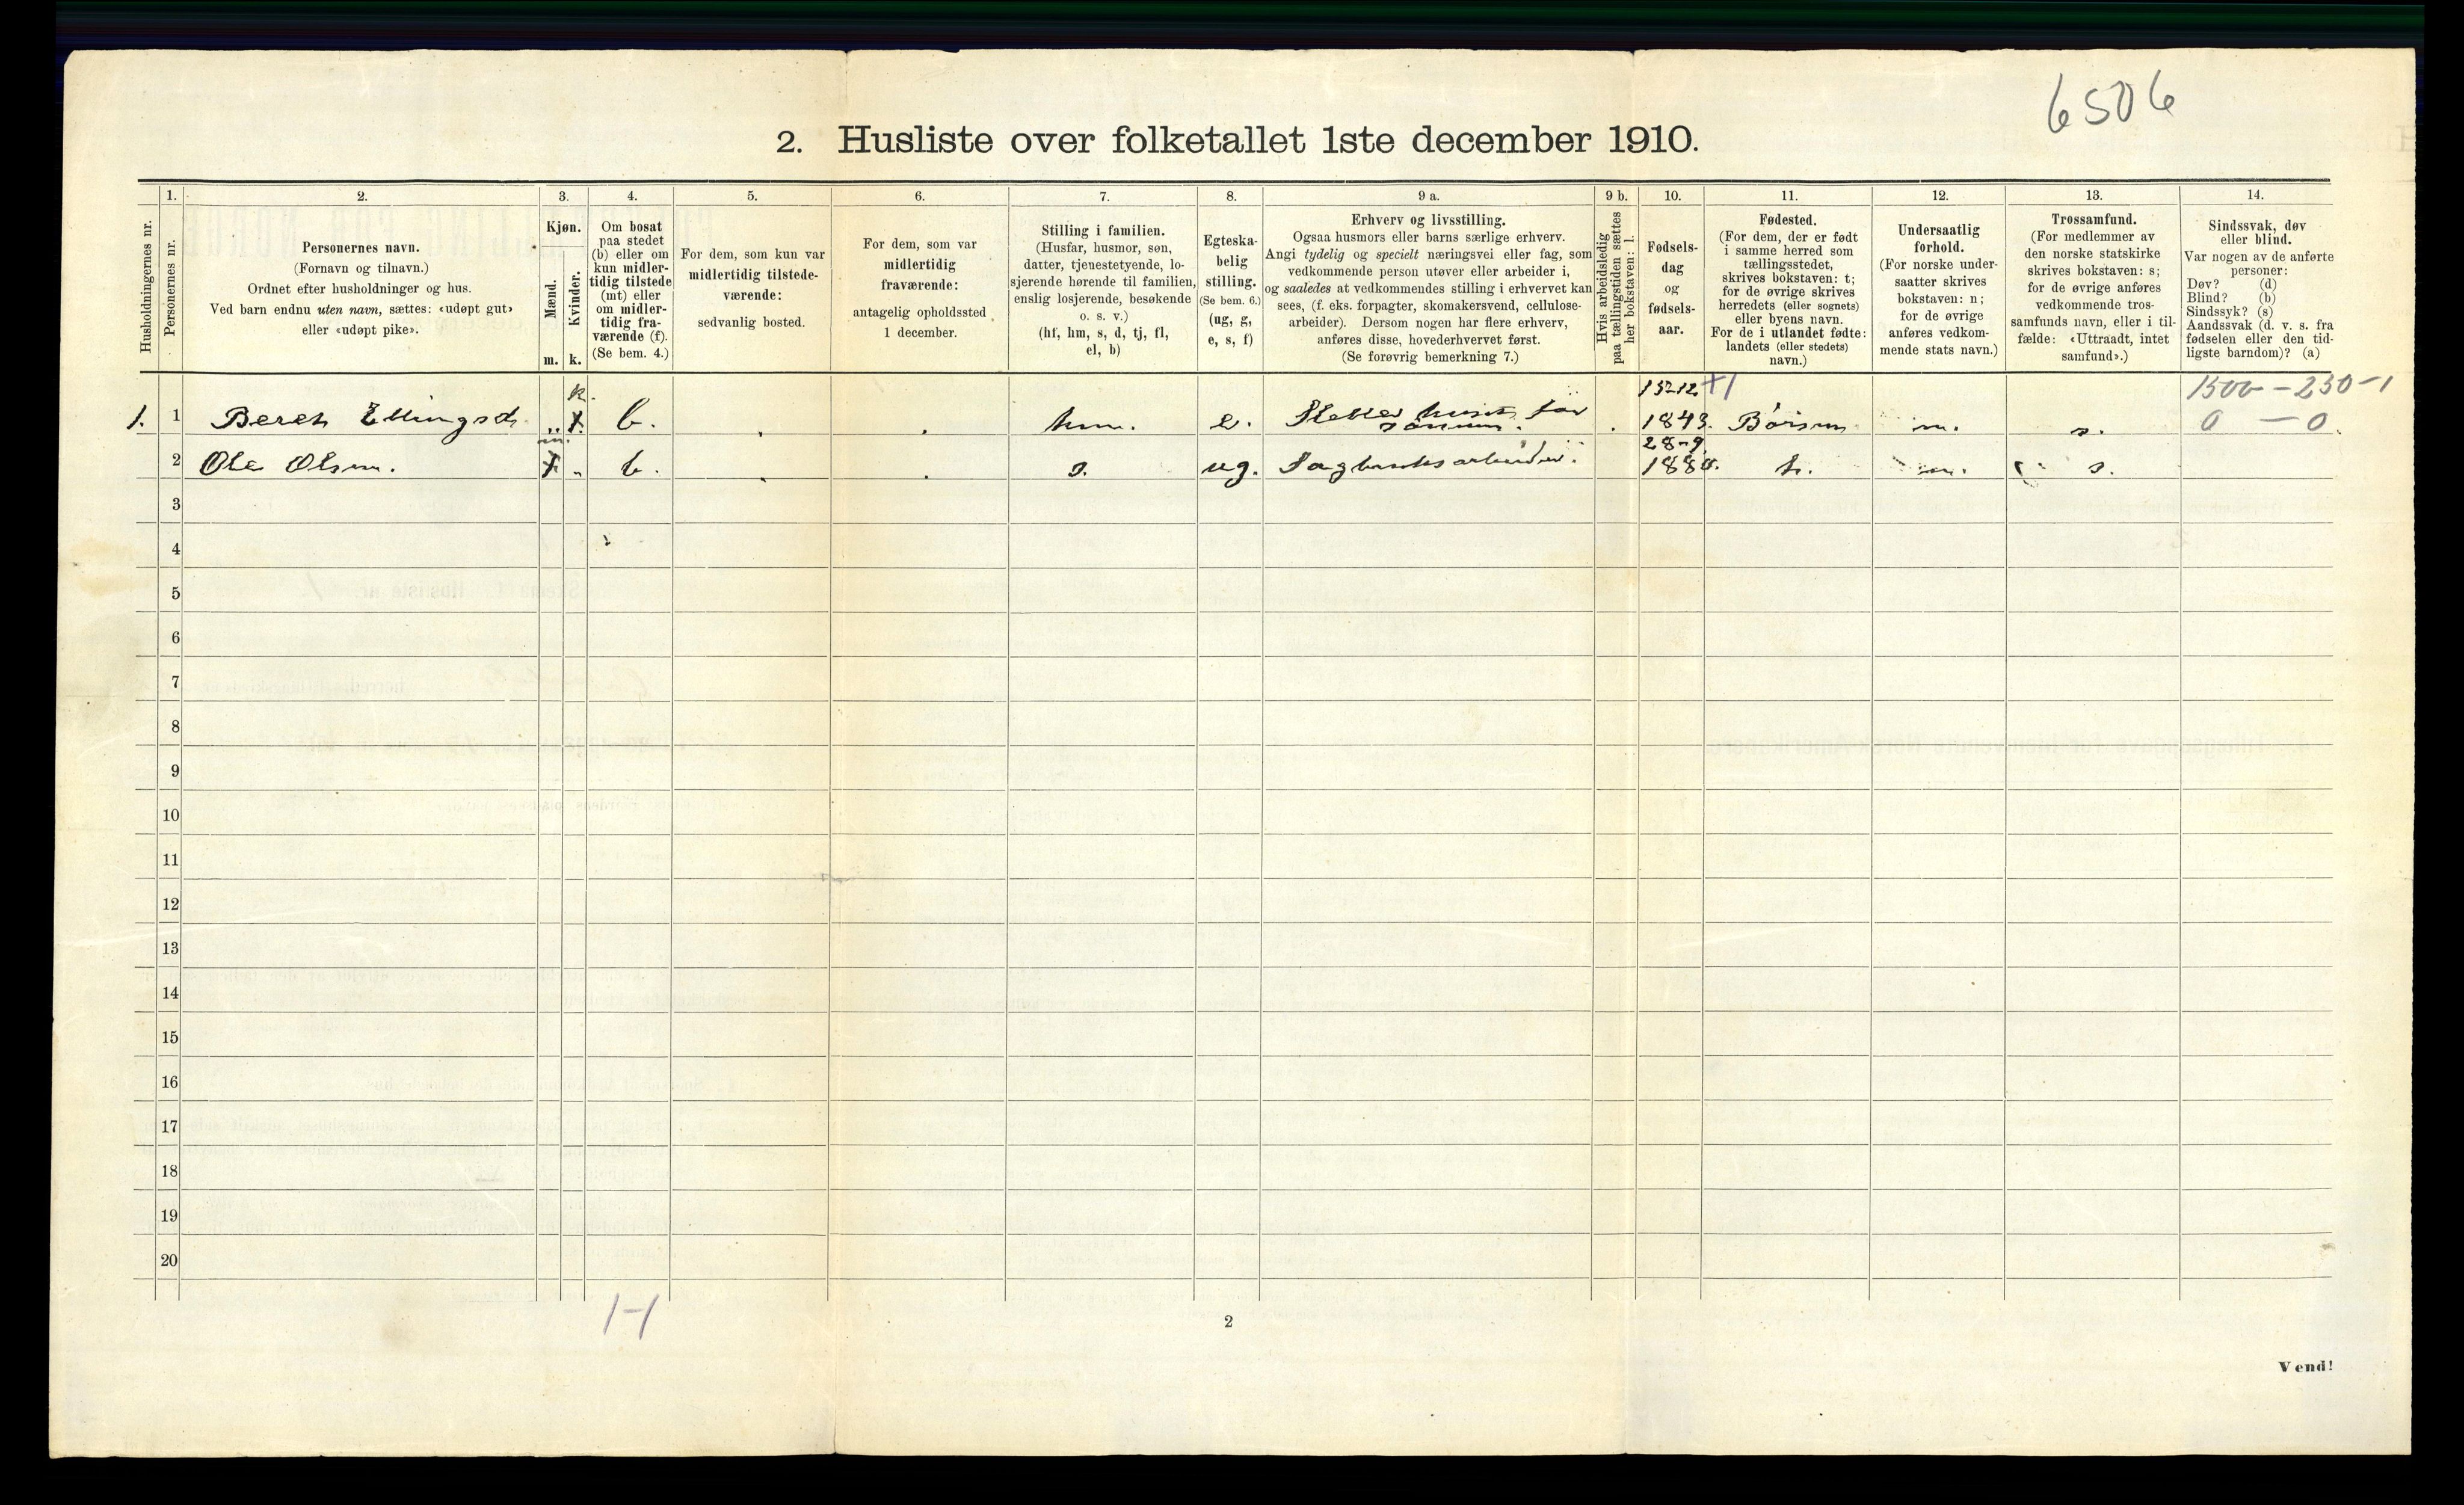 6506
2. Husliste over folketallet 1ste december 1910.
Husholdningernes nr.
1.
Personernes nr.
2.
Personernes navn.
(Fornavn og tilnavn.)
Ordnet efter husholdninger og hus.
Ved barn endnu uten navn, sættes: «udøpt gut»
eller «udøpt pike».
3.
Kjøn.
Mænd.
Kvinder.
m. k.
4.
Om bosat
paa stedet
(b) eller om
kun midler-
tidig tilstede
(mt) eller
om midler-
tidig fra-
værende (f).
(Se bem. 4.)
5.
For dem, som kun var
midlertidig tilstede-
værende:
sedvanlig bosted.
6.
For dem, som var
midlertidig
fraværende:
antagelig opholdssted
1 december.
7.
Stilling i familien.
(Husfar, husmor, søn,
datter, tjenestetyende, lo-
sjerende hørende til familien,
enslig losjerende, besøkende
o. s. v.)
(hf, hm, s, d, tj, fl,
el, b)
8.
Egteska-
belig
stilling.
(Se bem. 6.)
(ug, g,
e, s, f)
9 a.
Erhverv og livsstilling.
Ogsaa husmors eller barns særlige erhverv.
Angi tydelig og specielt næringsvei eller fag, som
vedkommende person utøver eller arbeider i,
og saaledes at vedkommendes stilling i erhvervet kan
sees, (f. eks. forpagter, skomakersvend, cellulose-
arbeider). Dersom nogen har flere erhverv,
anføres disse, hovederhvervet først.
(Se forøvrig bemerkning 7.)
9 b.
Hvis arbeidsledig
paa tællingstiden sættes
her bokstaven: l.
10.
Fødsels-
dag
og
fødsels-
aar.
11.
Fødested.
(For dem, der er født
i samme herred som
tællingsstedet,
skrives bokstaven: t;
for de øvrige skrives
herredets (eller sognets)
eller byens navn.
For de i utlandet fødte:
landets (eller stedets)
navn.)
12.
Undersaatlig
forhold.
(For norske under-
saatter skrives
bokstaven: n;
for de øvrige
anføres vedkom-
mende stats navn.)
13.
Trossamfund.
(For medlemmer av
den norske statskirke
skrives bokstaven: s;
for de øvrige anføres
vedkommende tros-
samfunds navn, eller i til-
fælde: «Uttraadt, intet
samfund».)
14.
Sindssvak, døv
eller blind.
Var nogen av de anførte
personer:
Døv? (d)
Blind? (b)
Sindssyk? (s)
Aandssvak (d. v. s. fra
fødselen eller den tid-
ligste barndom)? (a)
k. 15-12 +1 1500 - 250 - 1
1. 1 Beret Ellingsd. „ x b. hm. e. Steller huset for sönnen. 1843. Börsen n. s. 0 - 0
m. 28-9
2 Ole Olsen. x „ b. s. ug. Sagbruksarbeider. 1880. t. n. s.
3
4
5
6
7
8
9
10
11
12
13
14
15
16
17
18
19
20
1-1
2
Vend!